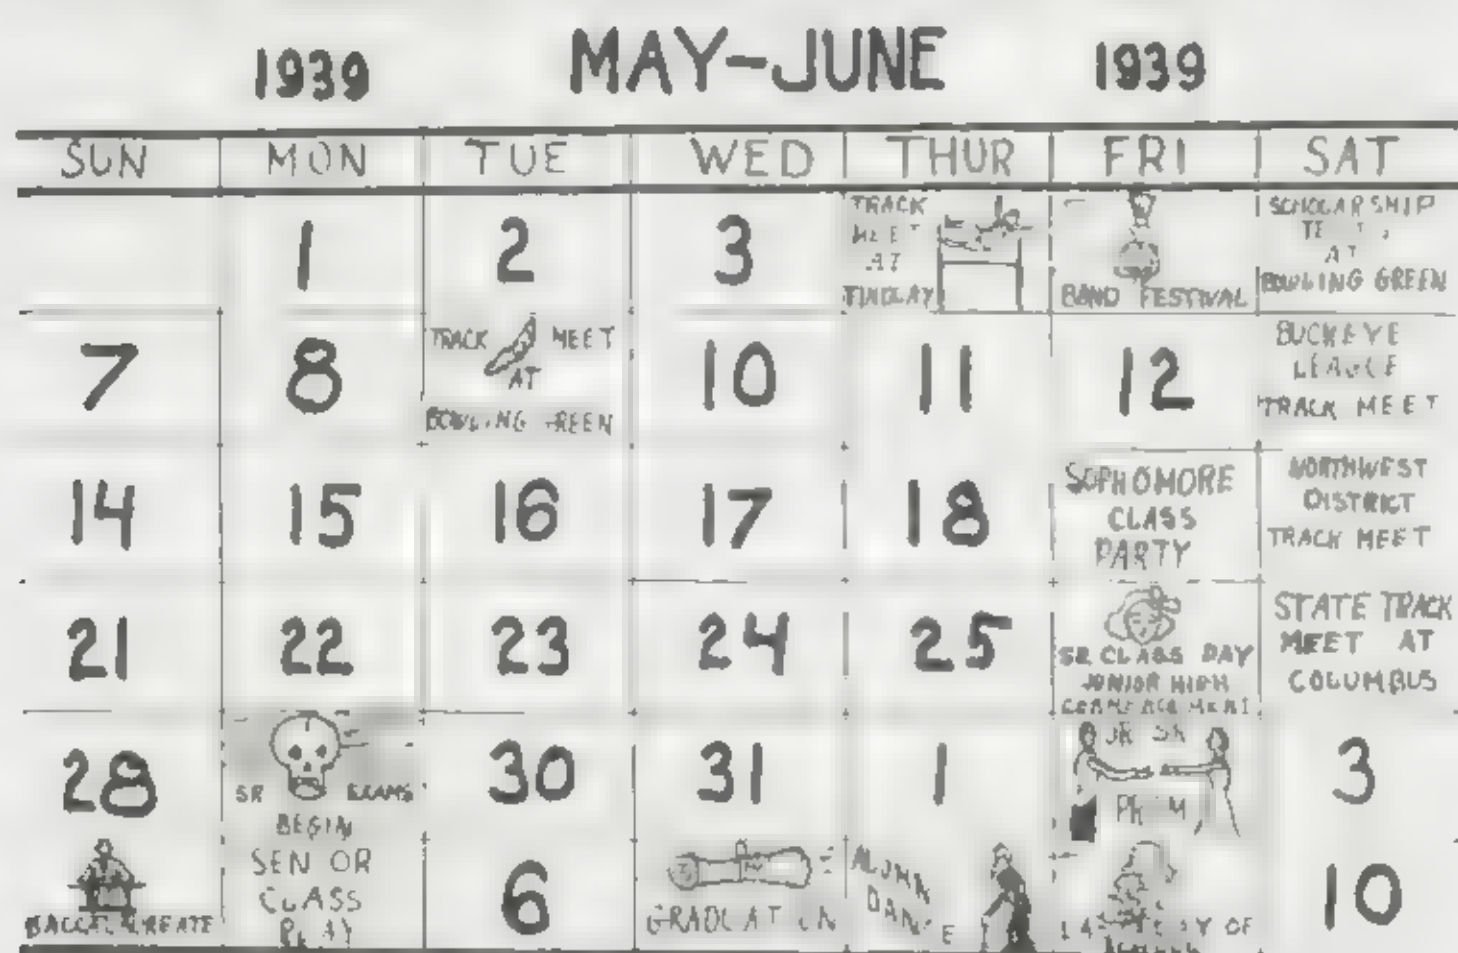 1939 MAY-JUNE 1939
SUN MON TUE WED THUR FRI SAT
1
2
3
TRACK
MEET
AT
FINDLAY
BAND FESTIVAL
SCHOLARSHIP
AT
BOWLING GREEN
7
8
TRACK MEET
AT
BOWLING GREEN
10
11
12
BUCKEYE
LEAGUE
TRACK MEET
14
15
16
17
18
SOPHOMORE
CLASS
PARTY
NORTHWEST
DISTRICT
TRACK MEET
21
22
23
24
25
SR CLASS DAY
JUNIOR HIGH
COMMENCEMENT
STATE TRACK
MEET AT
COLUMBUS
28
SR EXAMS
BEGIN
30
31
1
JR SR
PROM
3
BACCALAUREATE
SENIOR
CLASS
PLAY
6
GRADUATION
ALUMNI
DANCE
LAST DAY OF
10